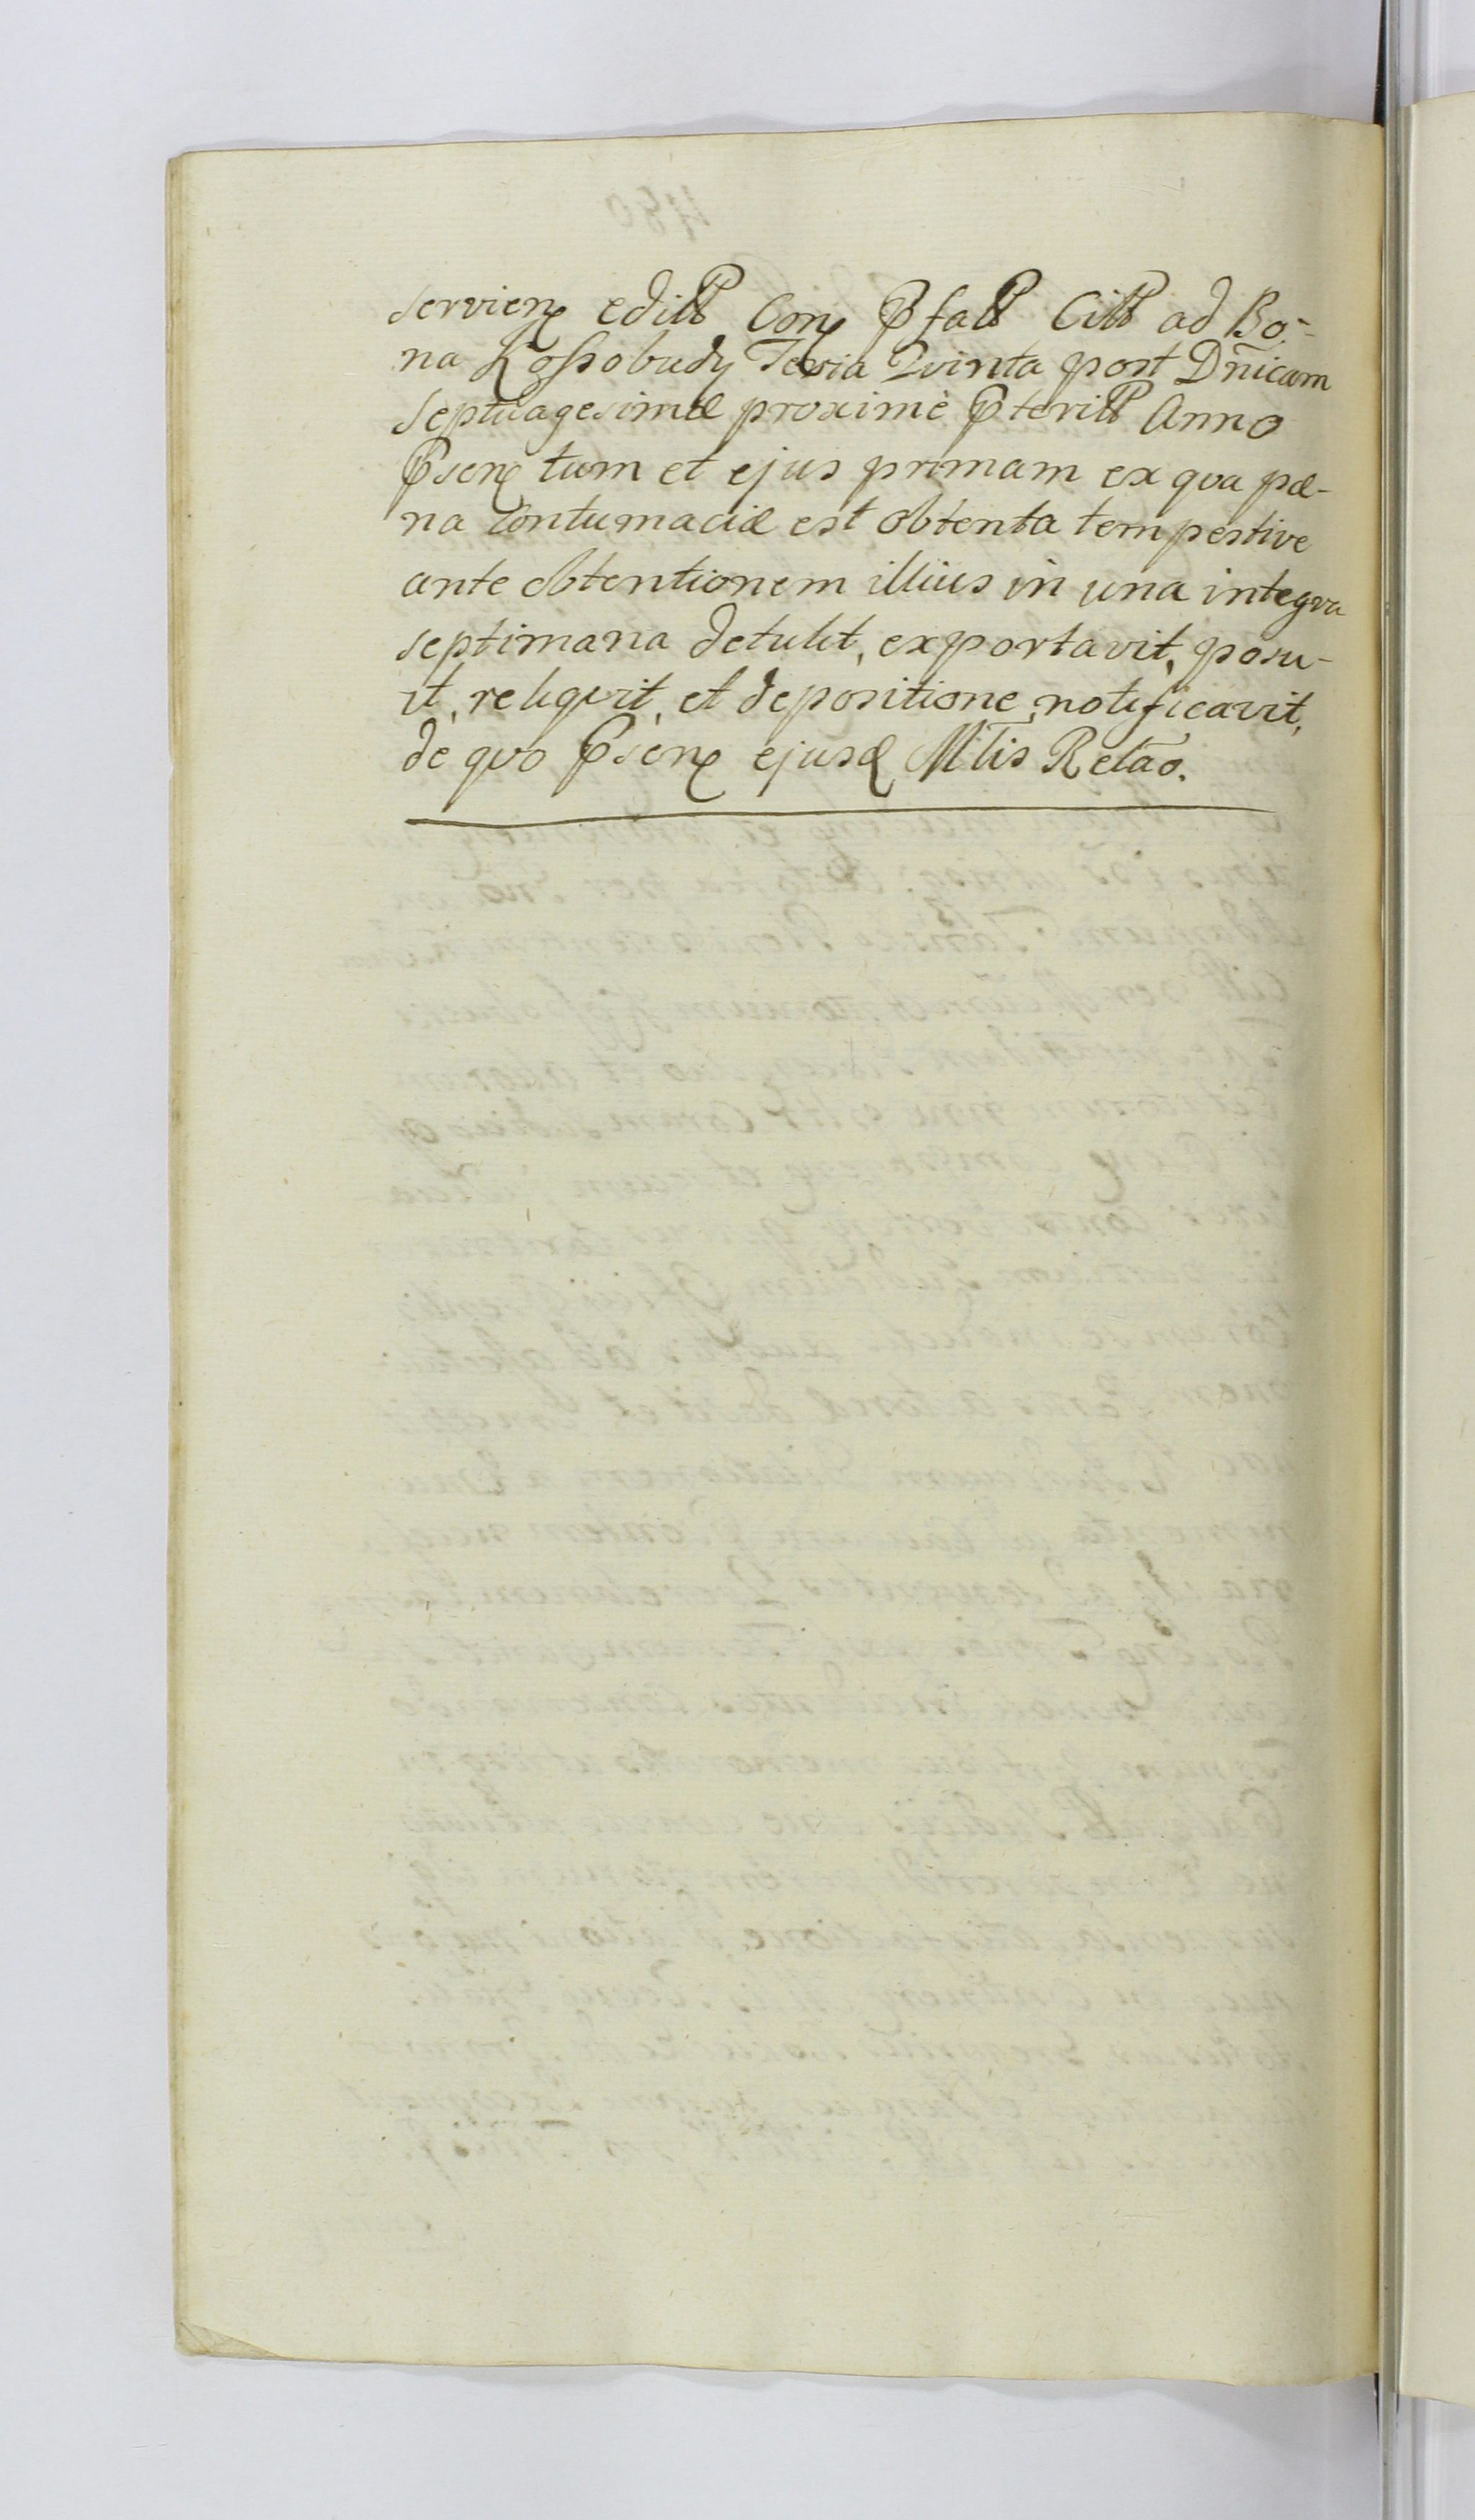 servien edill Con Pfall Cill ad Bo-
na Kossobudy Feria Qvinta post Dnicam
Septuagesimæ proximè Pterill Anno
Psen tum et ejus primam ex qva pæ-
na Contumaciæ est obtenta tempestive
ante obtentionem illius in una integra
septimana detulit, exportavit, posu-
it, reliqvit, et depositione notificavit,
de qvo Psen ejusd Mlis Relao.